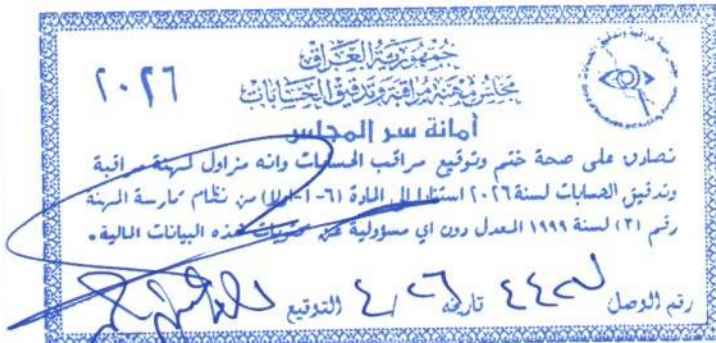 جمهورية العراق
مجلس مهنة مراقبة وتدقيق الحسابات
٢٠٢٦
أمانة سر المجلس
نصادق على صحة ختم وتوقيع مراقب الحسابات وانه مزاول لمهنة مراقبة
وتدقيق الحسابات لسنة ٢٠٢٦ استنادا الى المادة (٦-١-اولا) من نظام ممارسة المهنة
رقم (٣) لسنة ١٩٩٩ المعدل دون اي مسؤولية عن محتويات هذه البيانات المالية.
رقم الوصل تاريخه التوقيع